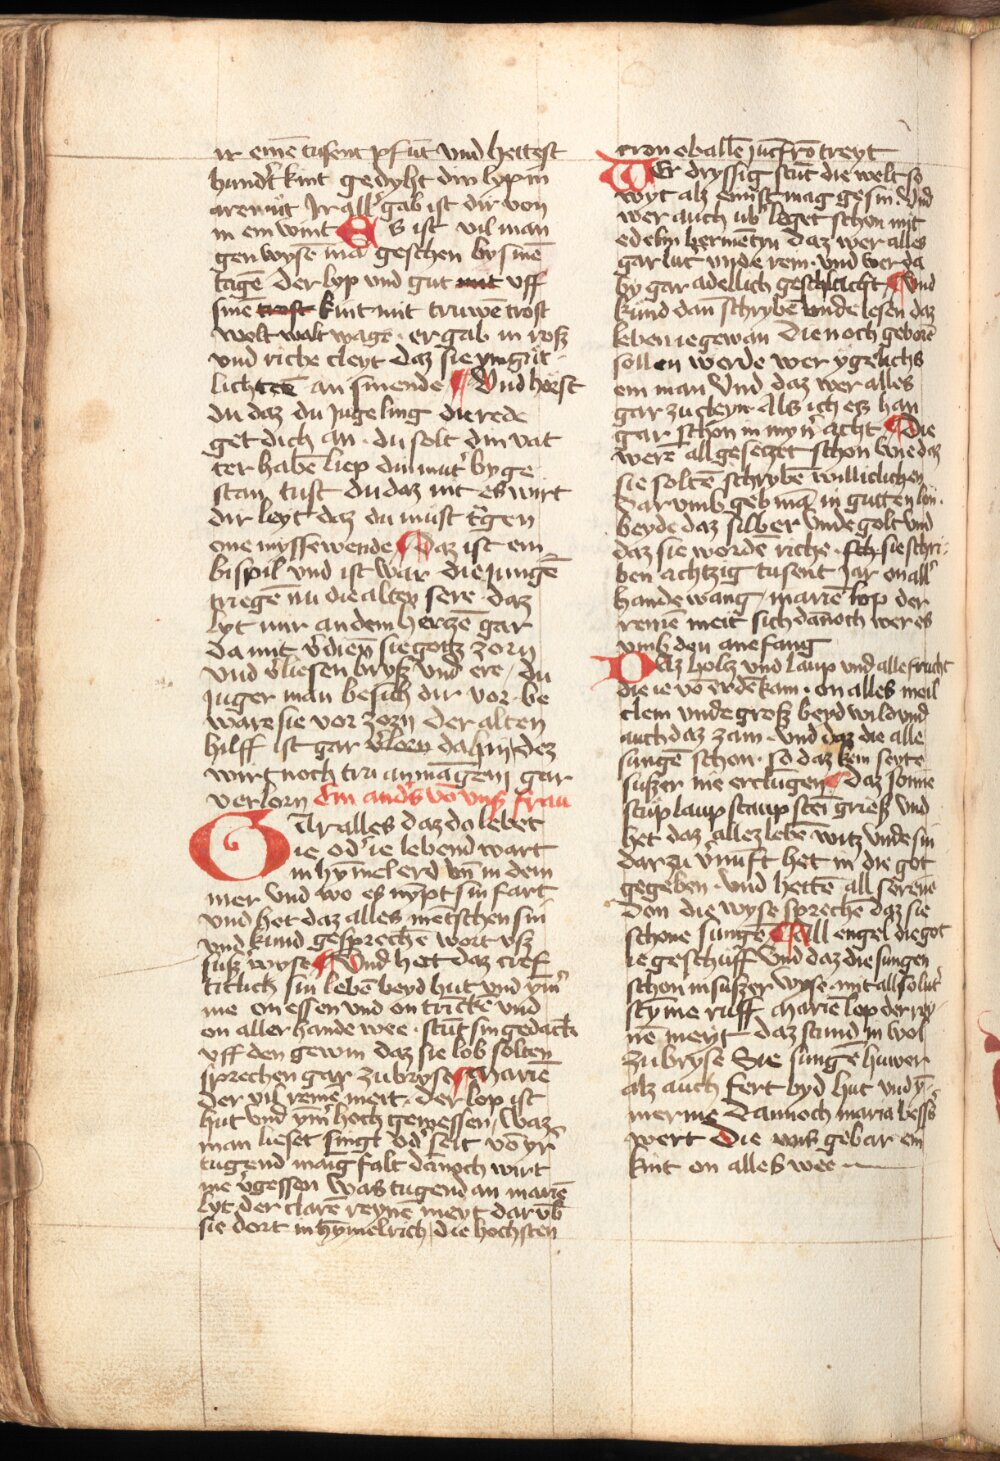 ir einē tusent pfūt vnd hettest
hundt kint gedyht din lyp in
armut Jr all gab ist dir von
in ein wint Es ist vil man
gen wysē mā geschen by sinē
tagē der lyp vnd gut mit vff
sinē trost kint mit truwē trost
wolt walt wage · er gab in roß
vnd riche cleyt daz sie ym güt
lich tee an sinende Vnd hörst
du daz du jügeling die rede
get dich an · du solt din vat
ter habē liep din mutˀ by ge
stan tust du daz nit es wirt
dir leyt daz du must tˀgen
one myssewende Daz ist ein
bispil vnd ist war die jungē
triegē nu die alten sere · daz
lyt mir an dem hertzē gar
da mit vˀdien sie gottz zorn
vnd vˀliesen bryß vnd ere / du
juger man besich dir vor · be
ware sie vor zorn der alten
hilff ist gar vˀlorn dahin / dez
wirt noch tru an māgem gar
verlorn Ein andˀs vō vnsˀ frau
Gur alles daz do lebet
ie odˀ ie lebend wart
in hȳmel erd vn̄ in dem
mer vnd wo es nypt sin fart
vnd het daz alles mētschen sin
vnd kund gesprechē wort vß
süßˀ wyse Vnd het daz cref
titlich sin lebē beyd hut vnd ymˀ
me on essen vnd on trinckē vnd
on aller hande wee · stüt sin gedāck
vff den gewin daz sie lob solten
sprechen gar zu bryse Mariē
der vil reine meit · der lop ist
hut vnd ymˀ hoch gemessen / waz
man lieset singt odˀ seit vō yrˀ
tugend manigfalt dānoch wirt
nie vˀgessen was tugend an mariē
lyt der clarē reynē meyt darūb
sie dort in hȳmelrich / die hochsten
cron ob allē jūcfrō treyt
Wer dryssig stūt die welt so
wyt alz einist mag gesin vnd
wer auch vbˀleget schon mit
edelm bermētin daz wer alles
gar lut vnde rein · vnd wer da
by gar adellich geschlacht Vnd
kund dan schrybē vnde lesen daz
leben ie gewan die noch geborē
sollen werde wer ygelichs
ein man vnd daz wer alles
gar zu cleyn · Als ich eß han
gar schon in mynˀ acht Die
werē all gesetzet schon vnd daz
sie soltē schrybē williclichen
Darumb geb mā in gutten lon ·
beyde daz silber vnde golt vnd
daz sie wordē riche · sch sie schri
ben achtzig tusent jar on allˀ
hande wang / mariē lop der
reinē meit sich dānoch wer es
vmb den anefang
Daz holtz vnd laup vnd alle frucht
die ie vō erdē kam · on alles meil
clein vnde groß beyd wild vnd
auch daz zam · vnd daz die alle
sungē schon · so daz kein seyte
süßer nie erclūgen Daz sonne
staup laup staup stei grieß vnd
het daz allez lebē witz vnde sin
darzu vˀnuft het in die got
gegeben · vnd hettē all serene
don die wyse sprechē daz sie
schone sungē All engel die got
ie geschuff vnd daz die sungen
schon in süßer wyse · mit all so lutˀ
styme ruff Mariē lop der rey
nē meyt daz stund in wol
zu bryse Sie sungē huwer
alz auch fert byd hut vnd ȳ
merme Dannoch maria bessˀ
wert Die vns gebar ein
kint on alles wee